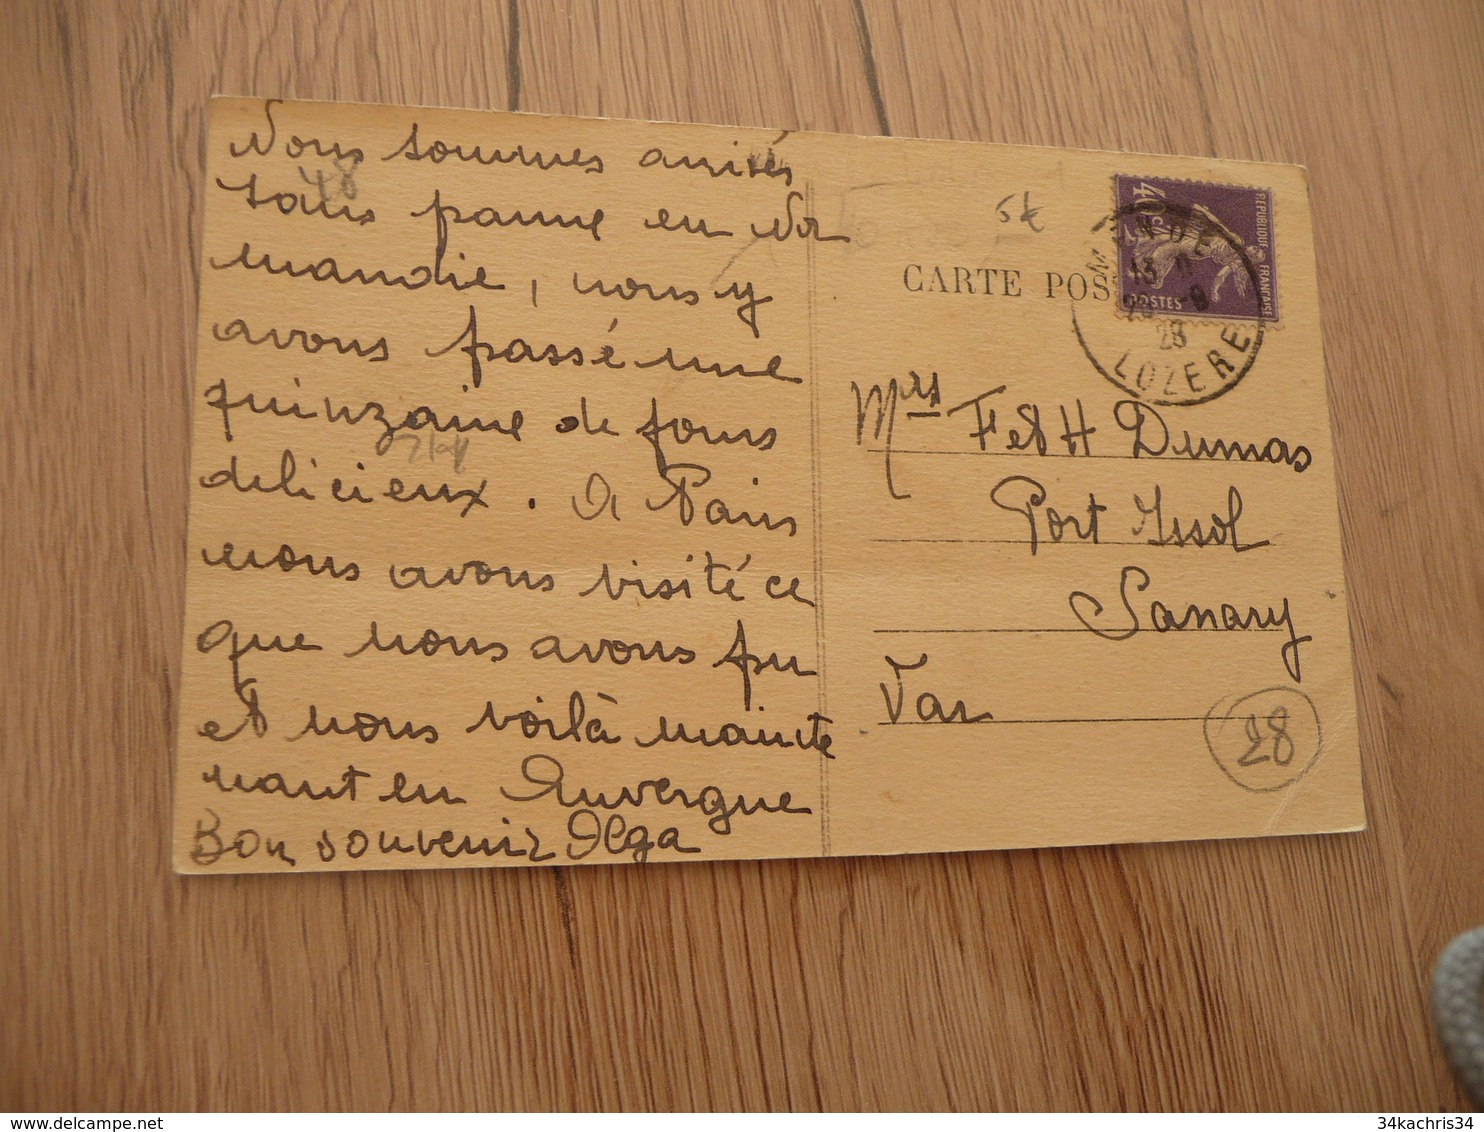 Nous sommes arrivés
sans panne en Nor
mandie, nous y
avons passé une
quinzaine de jours
delicieux. A Paris
nous avons visité ce
que nous avons pu
et nous voilà mainte
nant en Auvergne
Bon souvenir Olga
48
5€
CARTE POS
REPUBLIQUE FRANÇAISE
40c
POSTES
MENDE
13
28
LOZERE
Mrs F et H Dumas
Port Issol
Sanary
Var
28
34kachris34